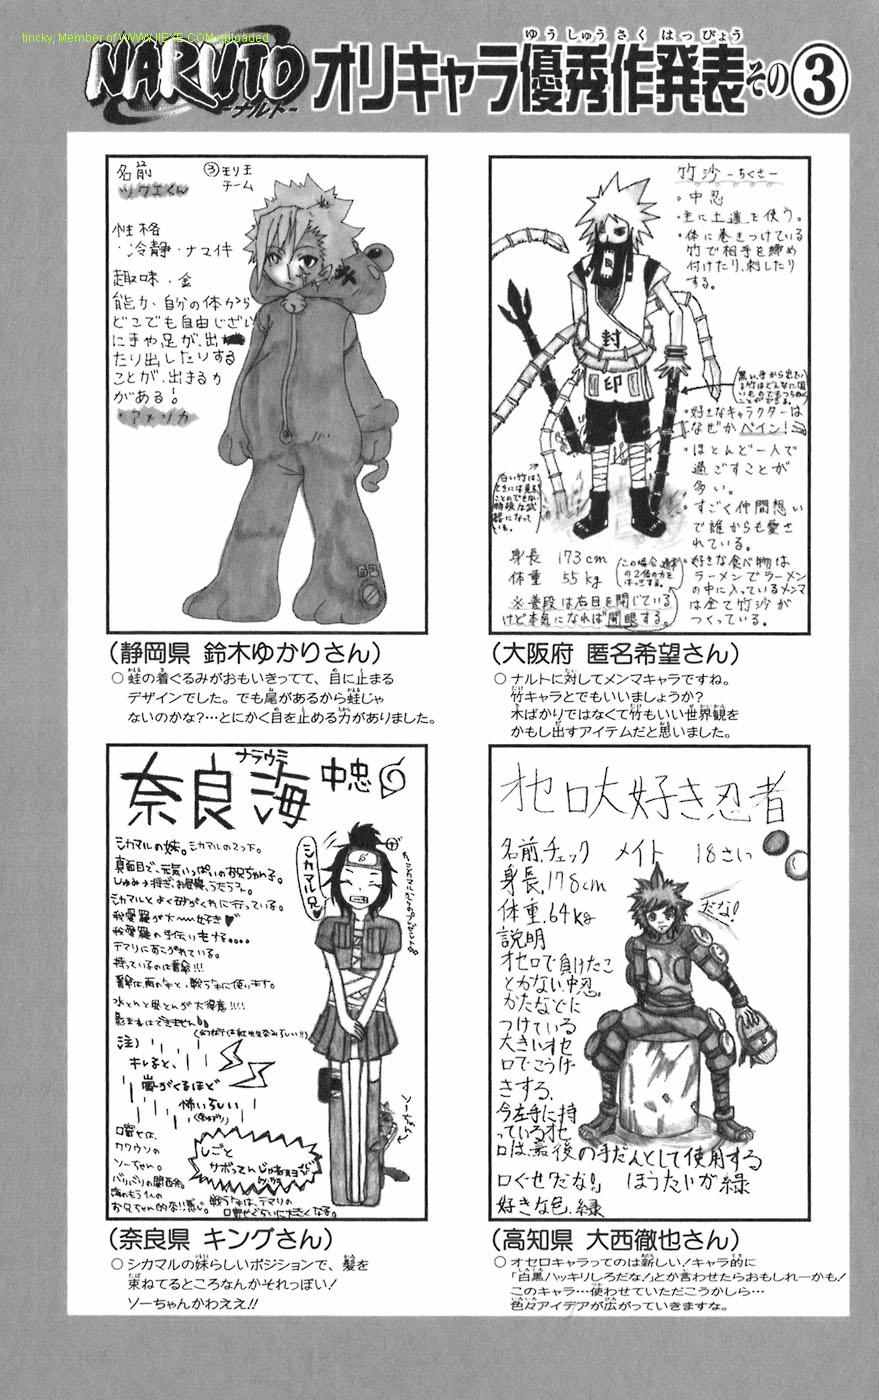 tincky, Member of WWW.IIEYE.COM uploaded
NARUTO
-ナルト-
オリキャラ優秀作発表その③
ゆうしゅうさくはっぴょう
名前
ツクエくん
③モリ王
チーム
性格
・冷静・ナマイキ
趣味・金
能力 自分の体から
どこでも自由じざい
に手や足が、出
たり出したりする
ことが、出まるカ
がある!
・アメリカ
(静岡県 鈴木ゆかりさん)
○蛙の着ぐるみがおもいきってて、目に止まる
デザインでした。でも尾があるから蛙じゃ
ないのかな?…とにかく目を止める力がありました。
竹沙 -ちくさ-
・中忍
・主に土遁を使う。
・体に巻きつけている
竹で相手を締め
付けたり、刺したり
する。
封
印
・好きなキャラクターは
なぜかペイン!
・ほとんど一人で
過ごすことが
多い。
・すごく仲間想い
で誰からも愛さ
れている。
・好きな食べ物は
ラーメンでラーメン
の中に入っているメンマ
は全て竹沙が
つくっている。
身長 173cm
体重 55kg
※普段は右目を閉じている
けど本気になれば開眼する。
(大阪府 匿名希望さん)
○ナルトに対してメンマキャラですね。
竹キャラとでもいいましょうか?
木ばかりではなくて竹もいい世界観を
かもし出すアイテムだと思いました。
ナラウミ
奈良海 中忠
シカマルの妹。シカマルの2つ下。
真面目で、元気いっぱいのお兄ちゃん子。
シカマルとよく砂がくれに行っている。
我愛羅が大〜好き♥
我愛羅の手伝いもする。。。
テマリにあこがれている。
シカマル兄♡
注)
キレると、
嵐がくるほど
怖いらしい
しごと
サボってんじゃねぇよ
口寄せは、
カワウソの
ソーちゃん。
バリバリの関西弁。
(奈良県 キングさん)
○シカマルの妹らしいポジションで、髪を
束ねてるところなんかそれっぽい!
ソーちゃんかわええ!!
オセロ大好き忍者
名前、チェック メイト 18さい
身長、178cm
体重、64kg
説明
オセロで負けたこ
とかない中忍。
かたなどに
つけている
大きいオセ
ロでこうげ
きする。
今左手に持
っているオセ
ロは、最後の手だんとして使用する
口ぐせ「だな!」 ほうたいが緑
好きな色、緑
だな!
(高知県 大西徹也さん)
○オセロキャラってのは新しい!キャラ的に
「白黒ハッキリしろだな!」とか言わせたらおもしれーかも!
このキャラ…使わせていただこうかしら…
色々アイデアが広がっていきますな。